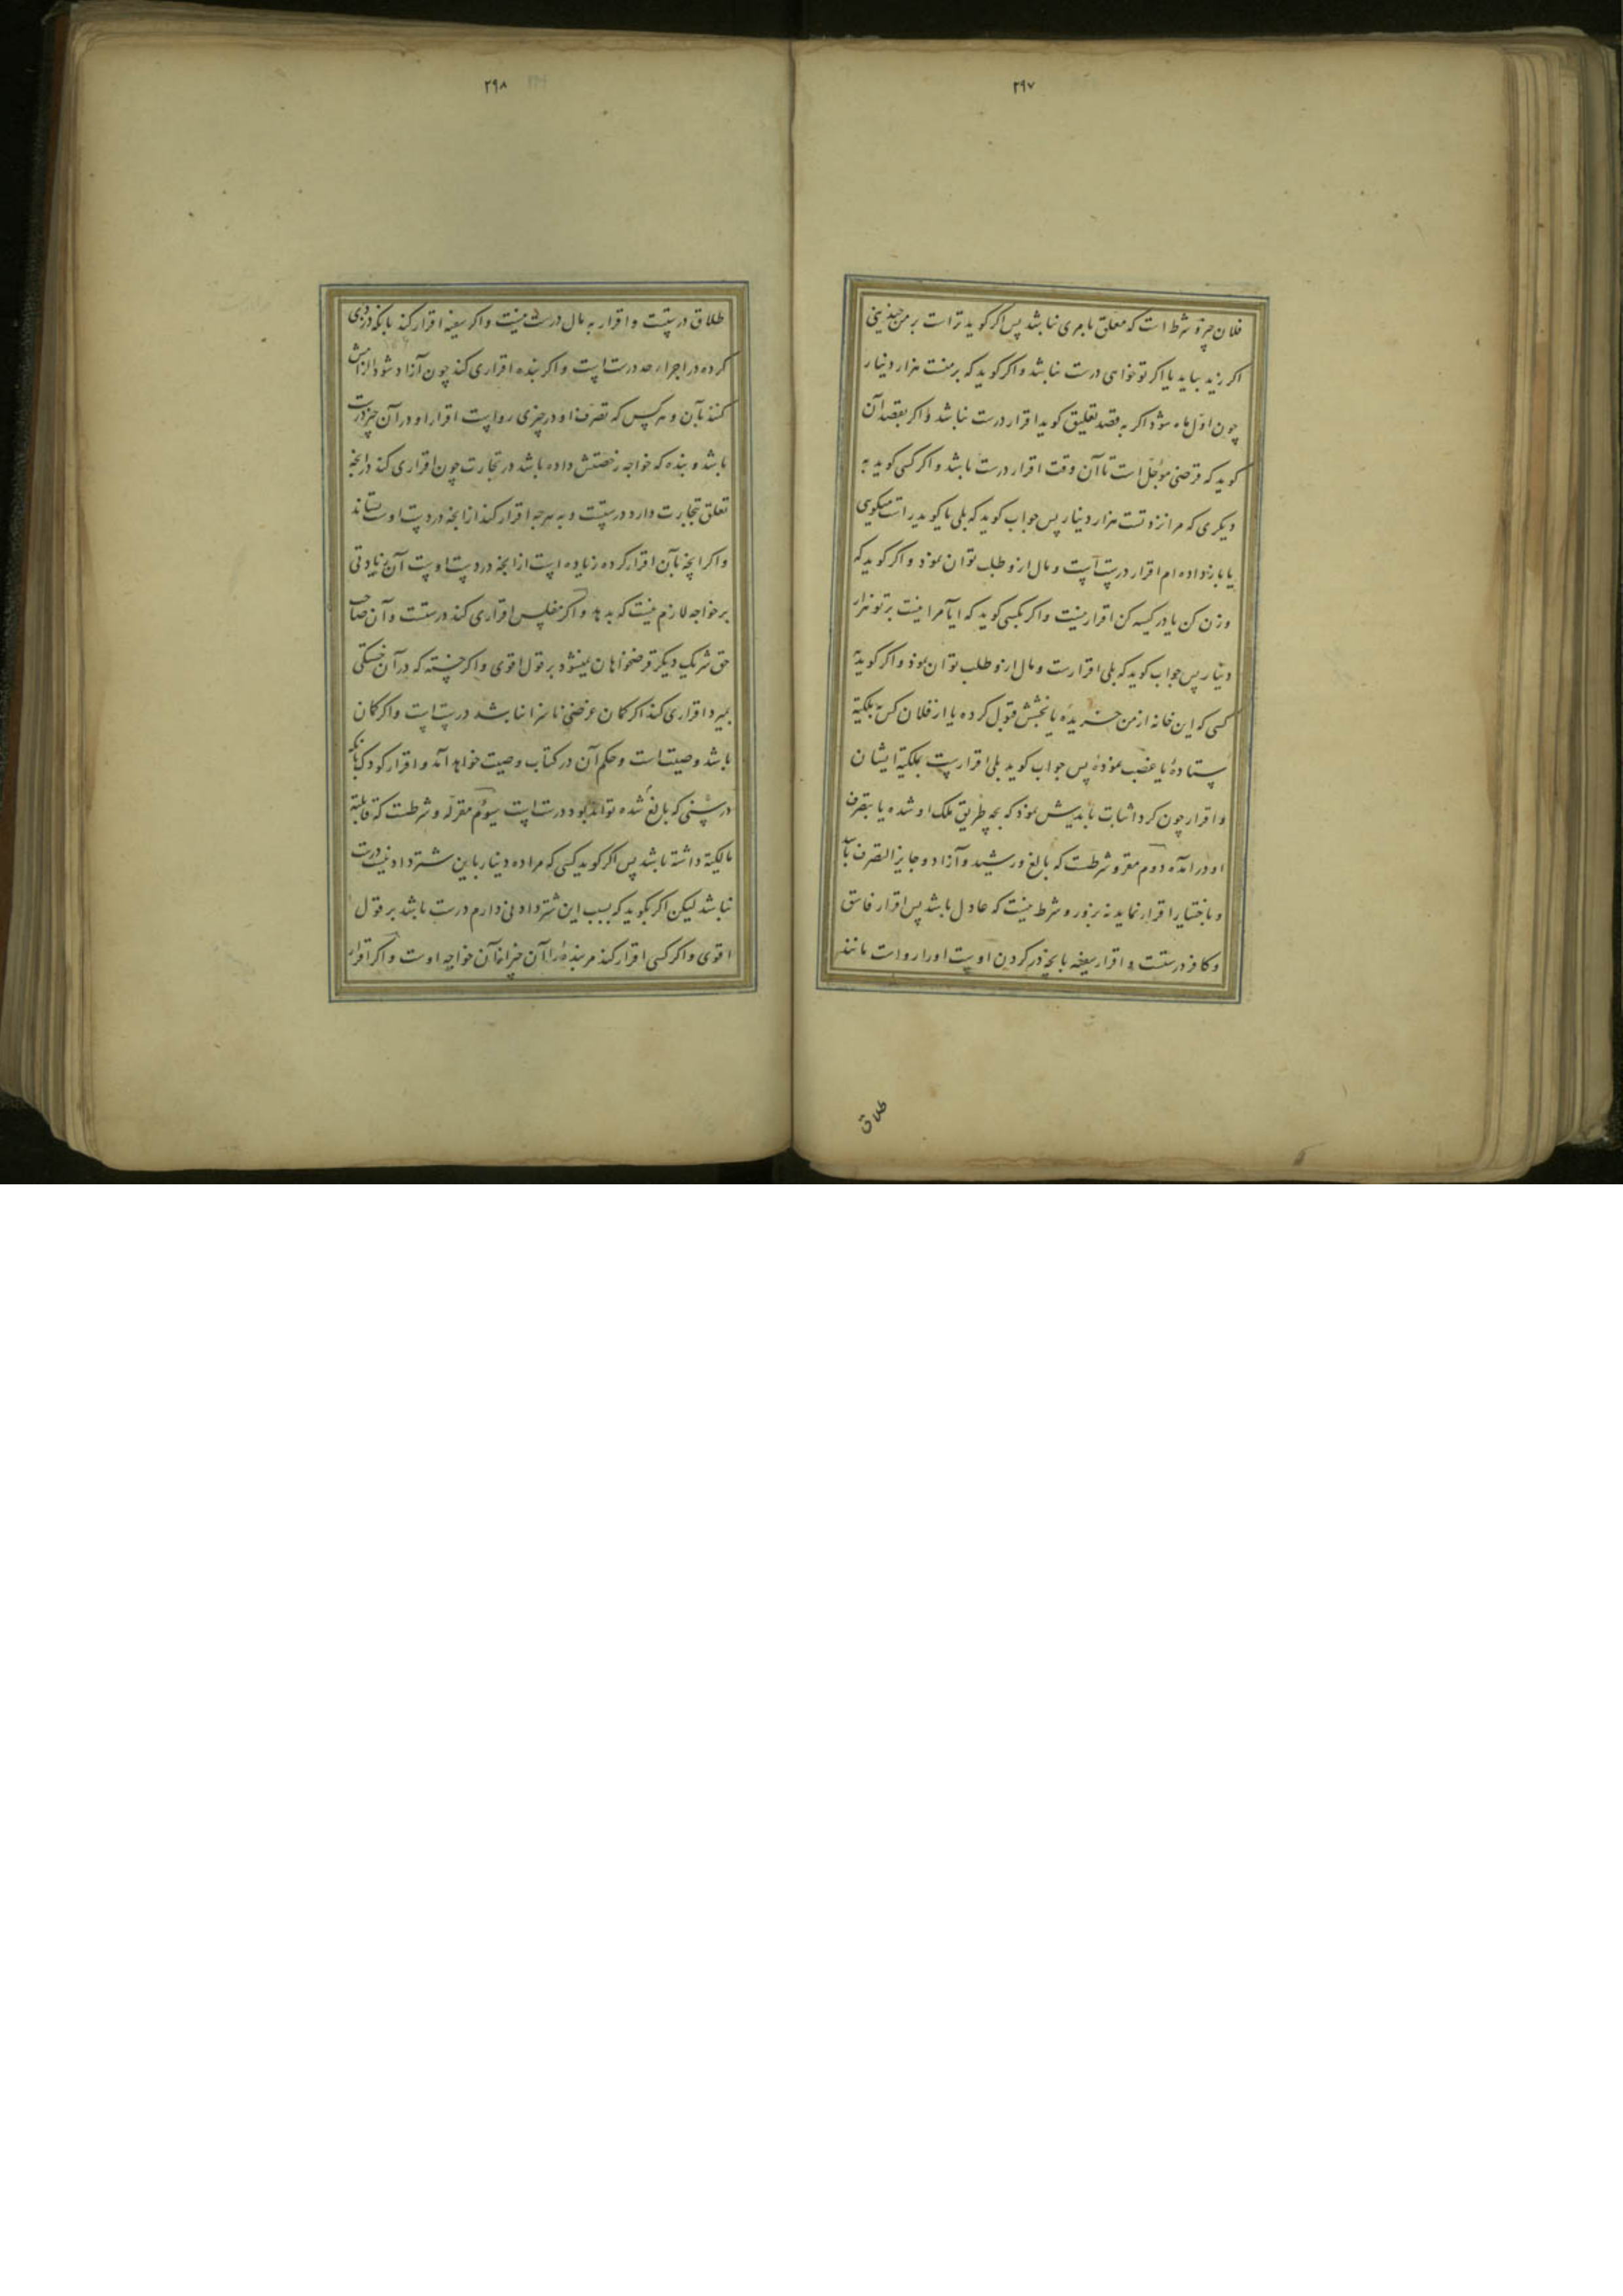 ۲۹۷
فلان چیز و شرط است که معلق بامری نباشد پس اگر کوید تراست بر من چندینی
اکر زید بیاید یا اکر تو خواهی درست نباشد و اکر کوید که بر منست هزار دینار
چون اول ماه شود اکر به قصد تعلیق کوید اقرار درست نباشد و اکر بقصد آن
کوید که قرضی مؤجل است تا آن وقت اقرار درست باشد و اکر کسی کوید به
دیکری که مرا نزد تست هزار دینار پس جواب کوید که بلی یا کوید راست میکویی
یا باز داده ام اقرار درست است و مال ازو طلب توان نمود و اکر کوید که
وزن کن یا در کیسه کن اقرار نیست و اکر بکسی کوید که ایا مرا نیست بر تو هزار
دینار پس جواب کوید که بلی اقرارست و مال ازو طلب توان نمود و اکر کوید به
کسی که این خانه از من خریدهٔ یا بخشش قبول کرده یا از فلان کس به ملکیة
ستادهٔ یا غصب نمودهٔ پس جواب کوید بلی اقرارست بملکیة ایشان
و اقرار چون کرد اثبات بایدش نمود که بچه طریق ملک او شده یا بتصرف
او در آمده دوم مقر و شرطست که بالغ و رشید و آزاد و جایز التصرف باشد
و باختیار اقرار نماید نه بزور و شرط نیست که عادل باشد پس اقرار فاسق
و کافر درستست و اقرار سفیه بانچه در کردن اوست او را رواست مانند
طلاق
۲۹۸
طلاق درستست و اقرار به مال درست نیست و اکر سفیه اقرار کند بانکه دزدی
کرده در اجراء حد درست است و اکر بنده اقراری کند چون آزاد شود الزامش
کنند بآن و هر کس که تصرف او در چیزی رواست اقرار او در آن چیز درست
باشد و بنده که خواجه رخصتش داده باشد در تجارت چون اقراری کند در انچه
تعلق بتجارت دارد درستست و به هرچه اقرار کند از انچه در دست اوست ستاند
و اکر انچه بآن اقرار کرده زیاده است از انچه در دست اوست آن زیادتی
بر خواجه لازم نیست که بدهد و اکر مفلس اقراری کند درستست و آن صاحب
حق شریک دیکر قرضخواهان نمیشود بر قول اقوی و اکر خسته که در آن خستکی
بمیرد اقراری کند اکر کمان غرضی ناسزا نباشد درست است و اکر کمان
باشد وصیتست و حکم آن در کتاب وصیت خواهد آمد و اقرار کودک بانکه
در سنی که بالغ شده تواند بود درست است سوم مقرله و شرطست که قابلیة
مالکیة داشته باشد پس اکر کوید کسی که مرا ده دینار باین شتر دادنیست درست
نباشد لیکن اکر بکوید که بسبب این شتر دادنی دارم درست باشد بر قول
اقوی و اکر کسی اقرار کند مر بندهٔ را آن چیز از آن خواجه اوست و اکر اقرار